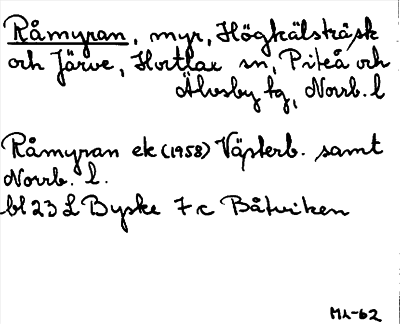 Råmyran, myr, Högkälsträsk
och Järve, Hortlax sn, Piteå och
Älvsby tg, Norrb. l
Råmyran ek (1958) Västerb. samt
Norrb. l.
bl 23 L Byske 7 c Båtviken
ML-62